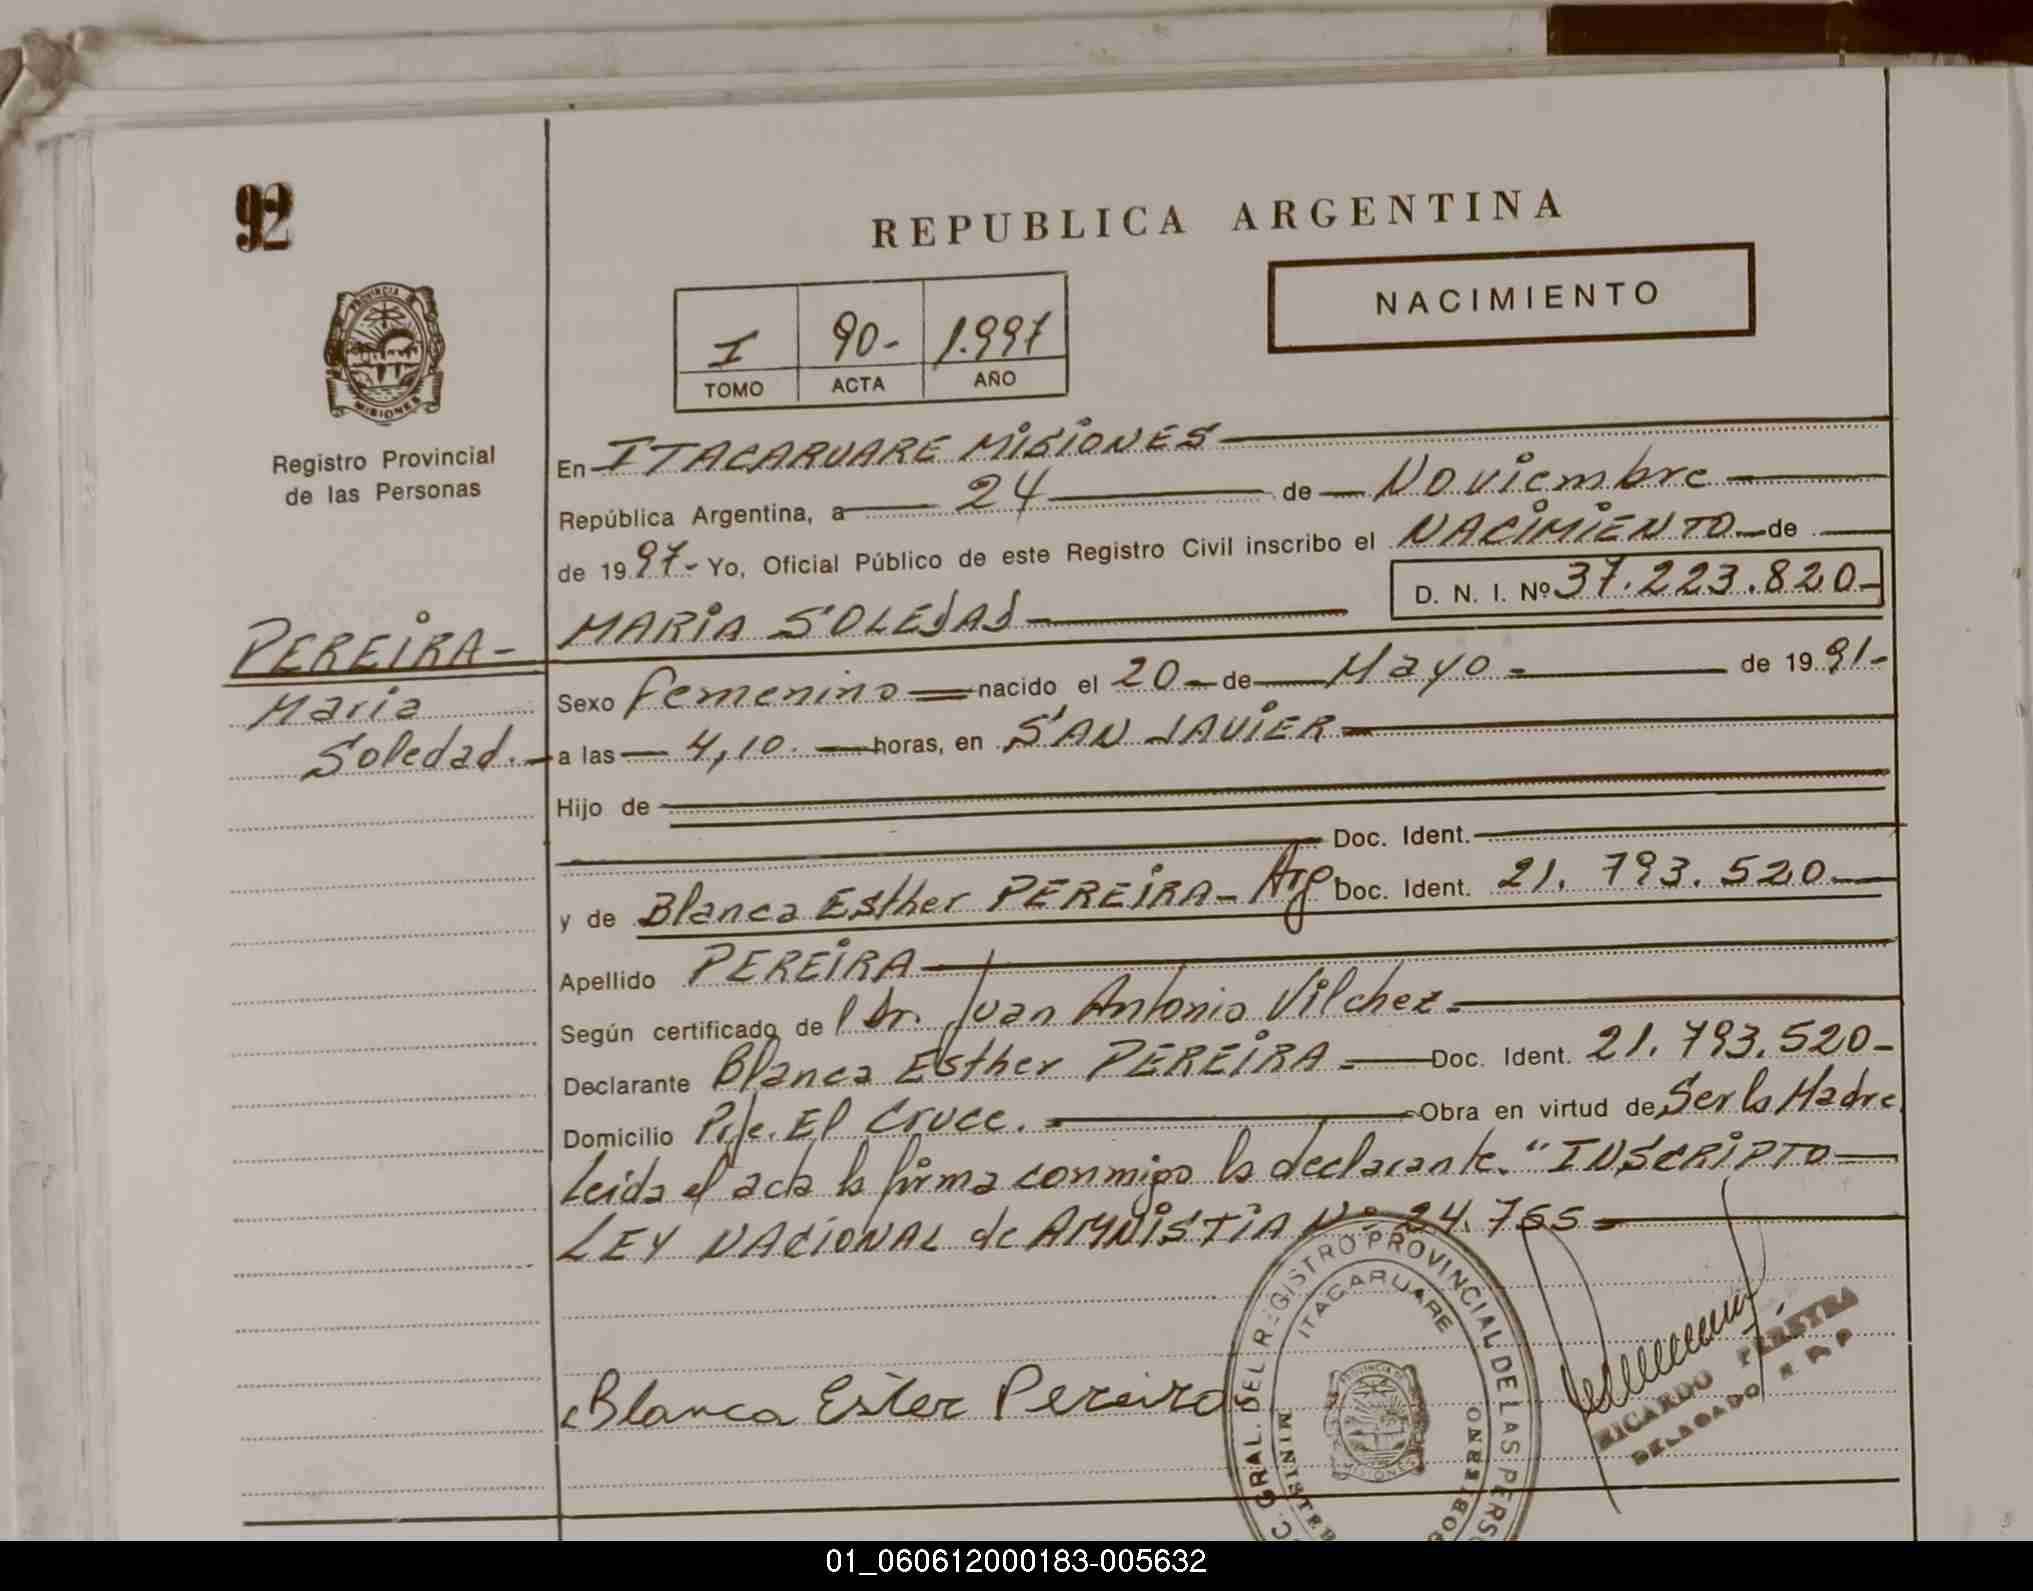 92
REPUBLICA ARGENTINA
NACIMIENTO
I 90- 1.997
TOMO ACTA AÑO
PROVINCIA
MISIONES
Registro Provincial
de las Personas
PEREIRA-
Maria
Soledad.-
En ITACARUARE MISIONES
República Argentina, a 24 de Noviembre
de 1997- Yo, Oficial Público de este Registro Civil inscribo el NACIMIENTO de
MARIA SOLEDAD D. N. I. Nº 37.223.820-
Sexo femenino nacido el 20 de Mayo - de 1991-
a las 4,10 horas, en SAN JAVIER
Hijo de
Doc. Ident.
y de Blanca Esther PEREIRA- Arg Doc. Ident. 21.793.520
Apellido PEREIRA
Según certificado de l Dr. Juan Antonio Vilchez
Declarante Blanca Esther PEREIRA Doc. Ident. 21.793.520-
Domicilio Pje. El Cruce. Obra en virtud de Ser la Madre
Leida el acta la firma conmigo la declarante. "INSCRIPTO
LEY NACIONAL de AMNISTIA Nº 24.755
Blanca Ester Pereira
C. GRAL. DEL REGISTRO PROVINCIAL DE LAS PERSO
ITACARUARE
MINISTER
GOBIERNO
PROVINCIA
MISIONES
RICARDO PEREYRA
DELEGADO R P P
01_060612000183-005632